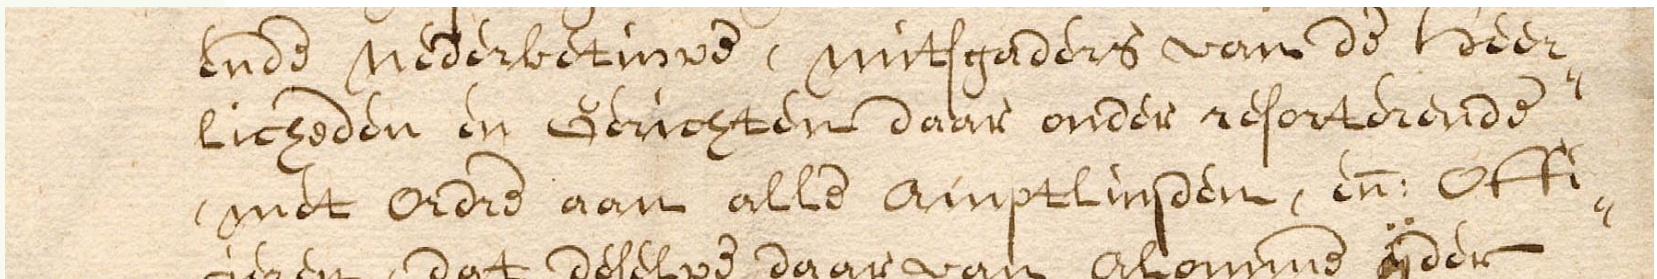 ende Nederbetuwe, mitsgaders van de Heer„
licheden en Gerichten daar onder resorterende
, met ordre aan alle Amptluijden, en̅: Offi„
cieren, dat deselve daar van alomme ÿder